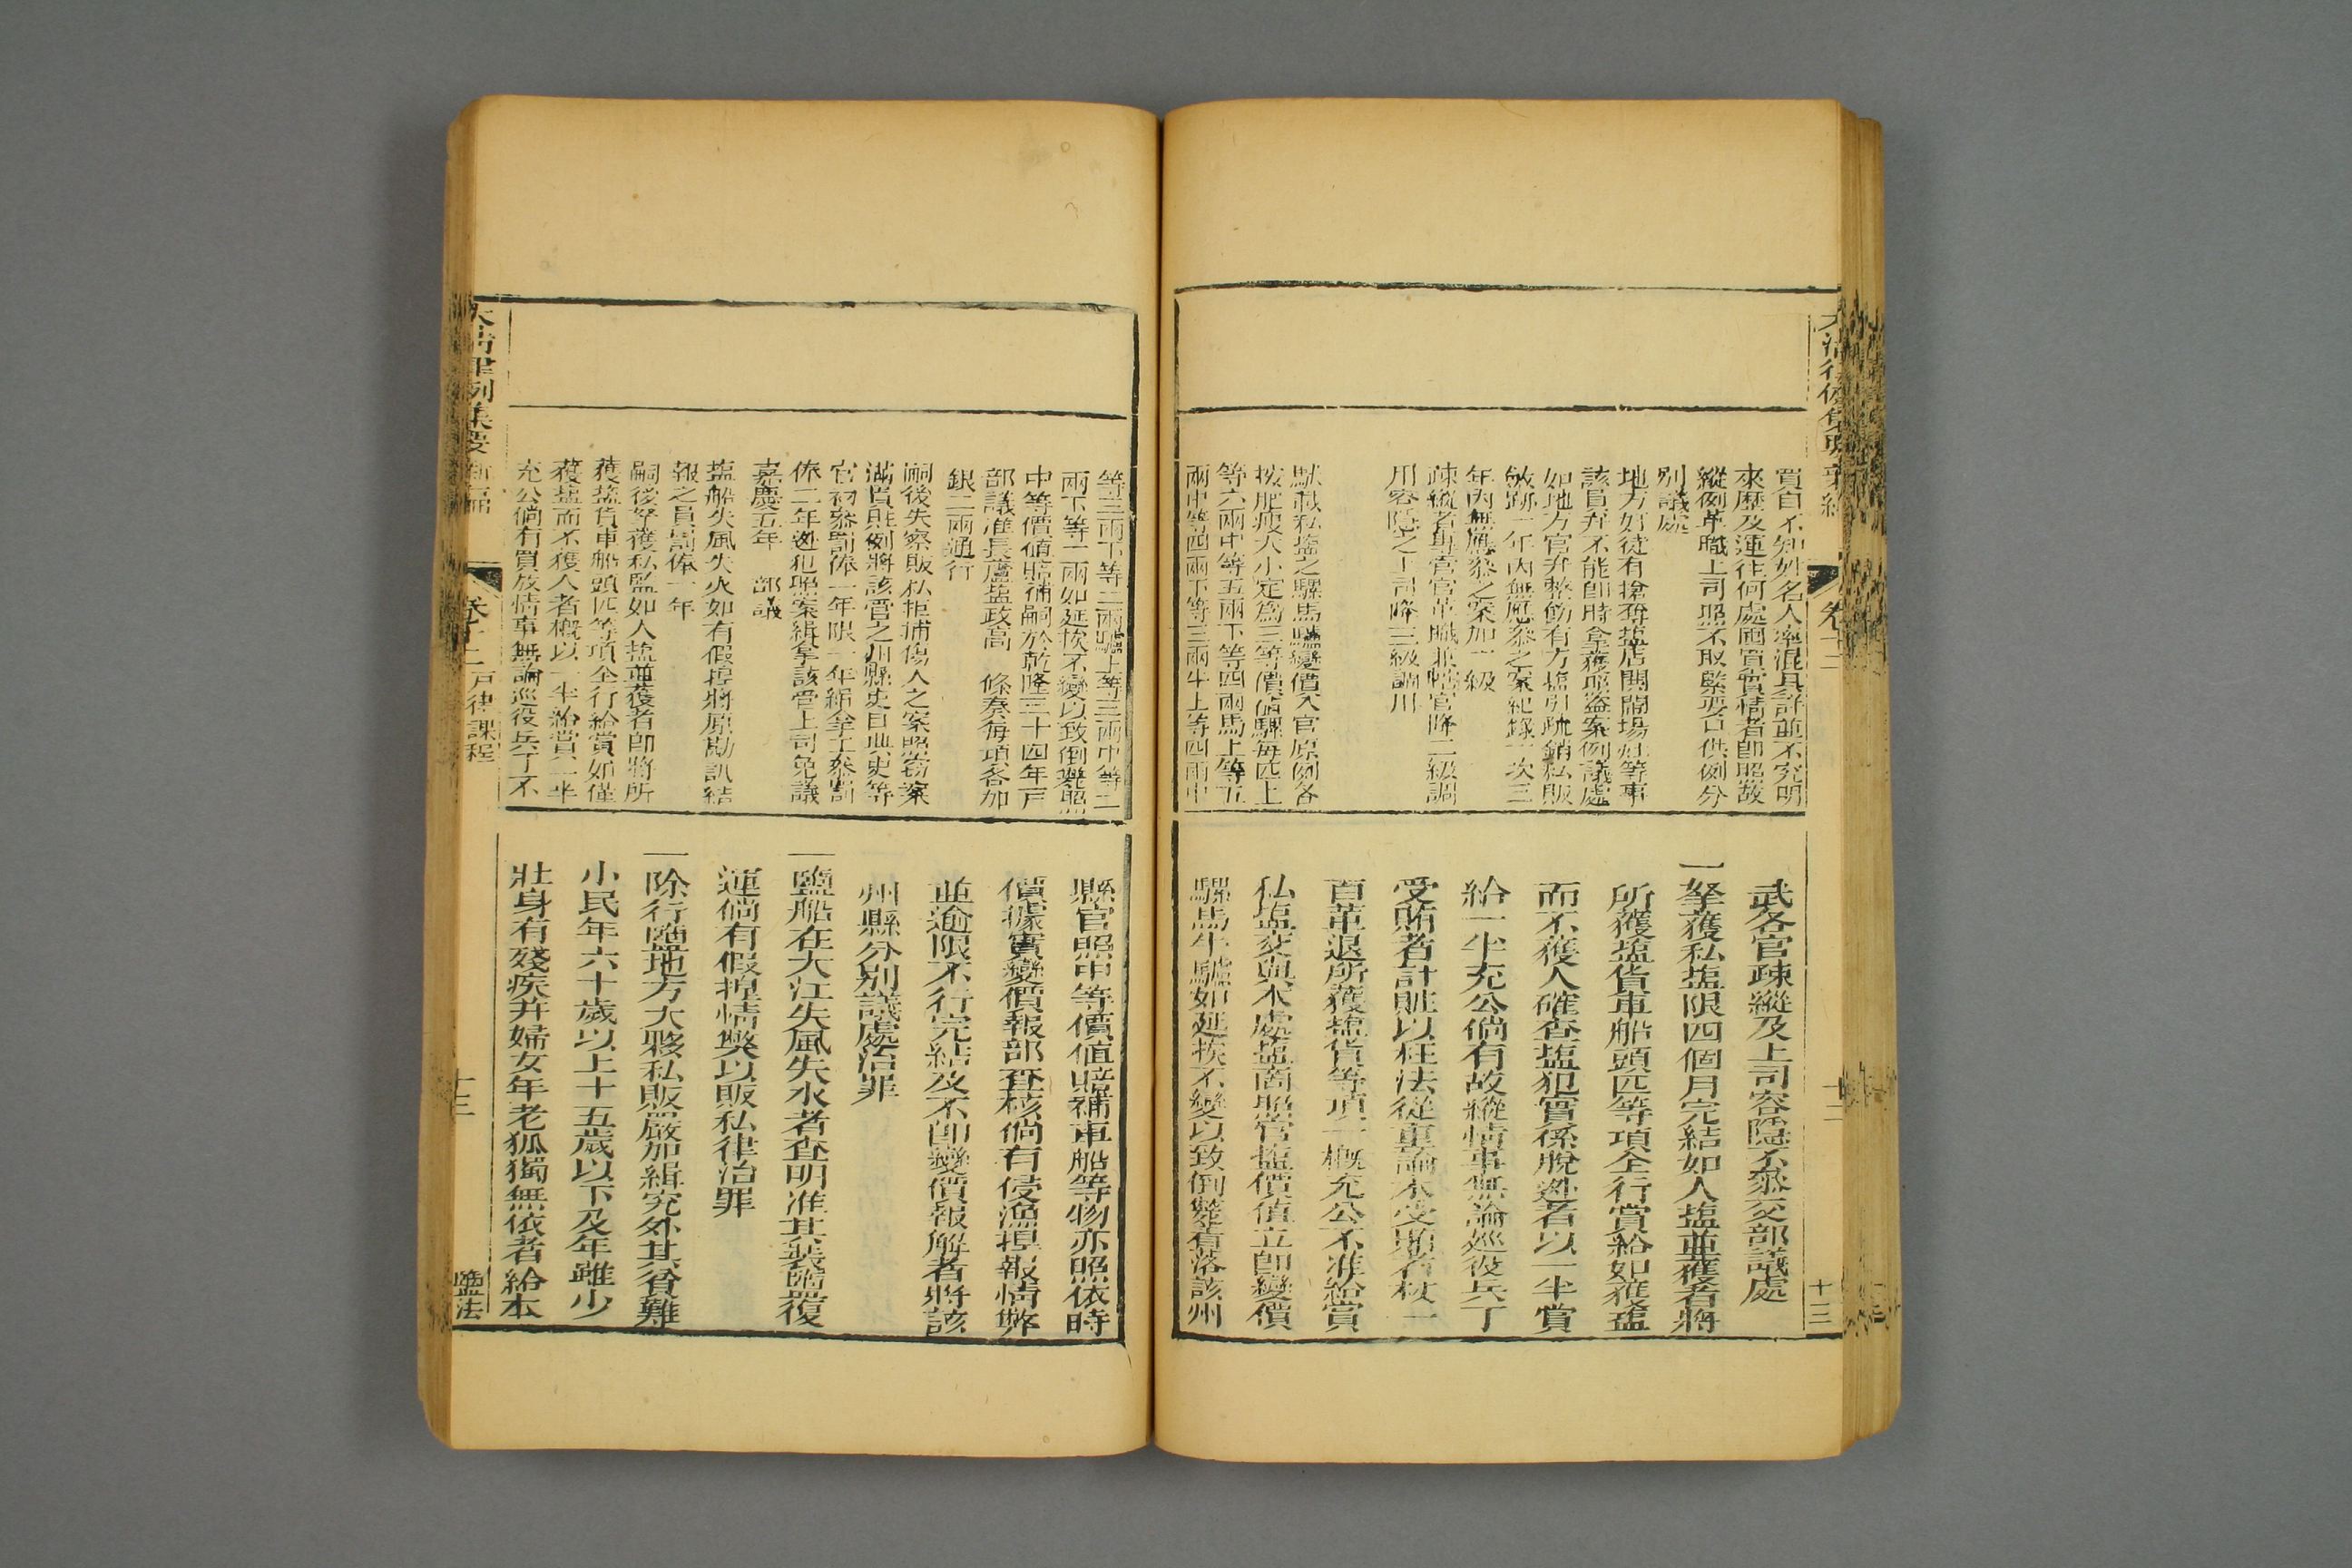 買自不知姓名人率混具詳並不究明
來歷及運往何處囤買實情者即照故
縱例革職上司照不取緊要口供例分
別議處
地方奸徒有搶奪塩店鬨鬧場灶等事
該員弁不能即時拿獲照盜案例議處
如地方官弁整飭有方塩引疏銷私販
斂跡一年內無應叅之案紀錄一次三
年內無應叅之案加一級
疎縱者專管官革職兼轄官降二級調
用容隱之上司降三級調用
馱載私塩之騾馬驢變價入官原例各
按肥瘦大小定為三等價值騾每匹上
等六兩中等五兩下等四兩馬上等五
兩中等四兩下等三兩牛上等四兩中
武各官疎縱及上司容隱不叅交部議處
一拏獲私塩限四個月完結如人塩並獲者將
所獲塩貨車船頭匹等項全行賞給如獲塩
而不獲人確查塩犯實係脫逃者以一半賞
給一半充公倘有故縱情事無論巡役兵丁
受賄者計贓以枉法從重論未受賄者杖一
百革退所獲塩貨等項一概充公不准給賞
私塩交與本處塩商照官塩價值立即變價
騾馬牛驢如延挨不變以致倒斃着落該州
卷十二
十三
等三兩下等二兩驢上等三兩中等二
兩下等一兩如延挨不變以致倒斃照
中等價值賠補嗣於乾隆三十四年戶
部議准長蘆塩政高 條奏每項各加
銀二兩通行
嗣後失察販私拒捕傷人之案照竊案
滿貫則例將該管之州縣吏目典史等
官初叅罰俸一年限一年緝拿二叅罰
俸二年逃犯照案緝拿該管上司免議
嘉慶五年 部議
塩船失風失火如有假捏將原勘訊結
報之員罰俸一年
嗣後拏獲私塩如人塩並獲者即將所
獲塩貨車船頭匹等項全行給賞如僅
獲塩而不獲人者概以一半給賞一半
充公倘有買放情事無論巡役兵丁不
縣官照中等價值賠補車船等物亦照依時
價據實變價報部查核倘有侵漁捏報情弊
並逾限不行完結及不即變價報解者將該
州縣分別議處治罪
一鹽船在大江失風失水者查明准其裝鹽復
運倘有假捏情獘以販私律治罪
一除行鹽地方大夥私販嚴加緝究外其貧難
小民年六十歲以上十五歲以下及年雖少
壯身有殘疾并婦女年老孤獨無依者給本
大清律例集要新編
卷十二 戶律課程
十三
鹽法